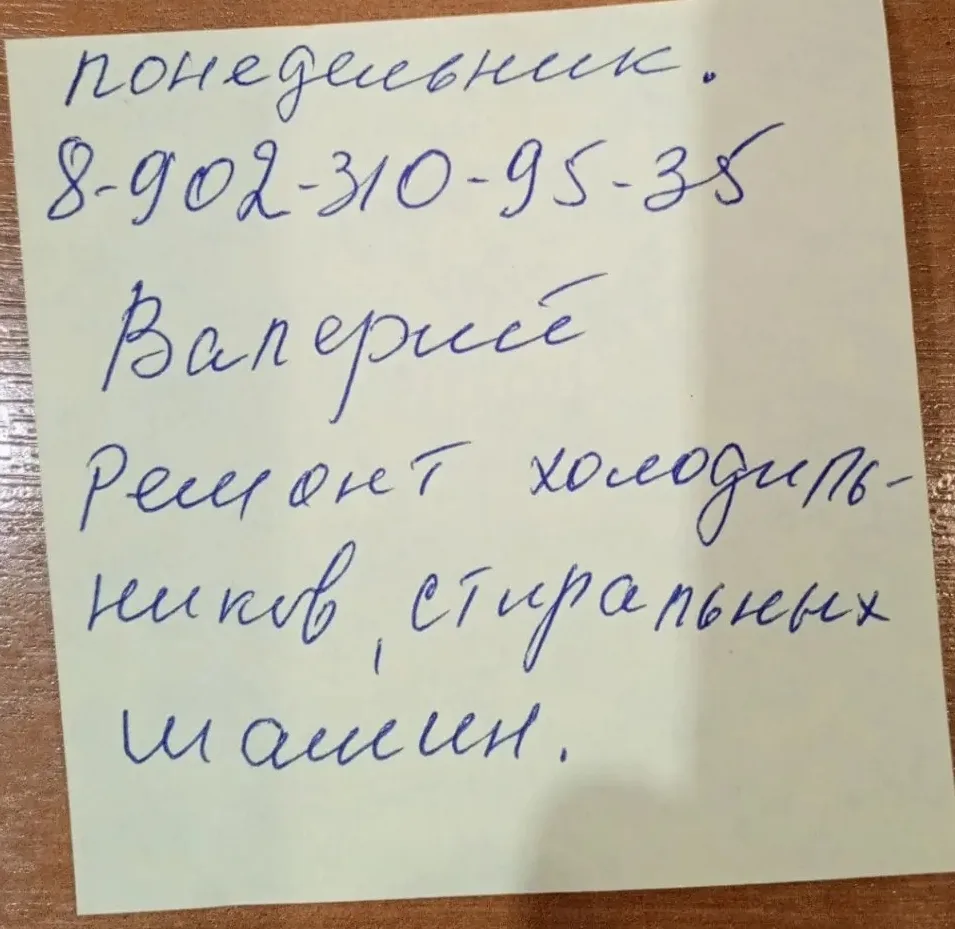 понедельник.
8-902-310-95-35
Валерий
Ремонт холодиль-
ников, стиральных
машин.